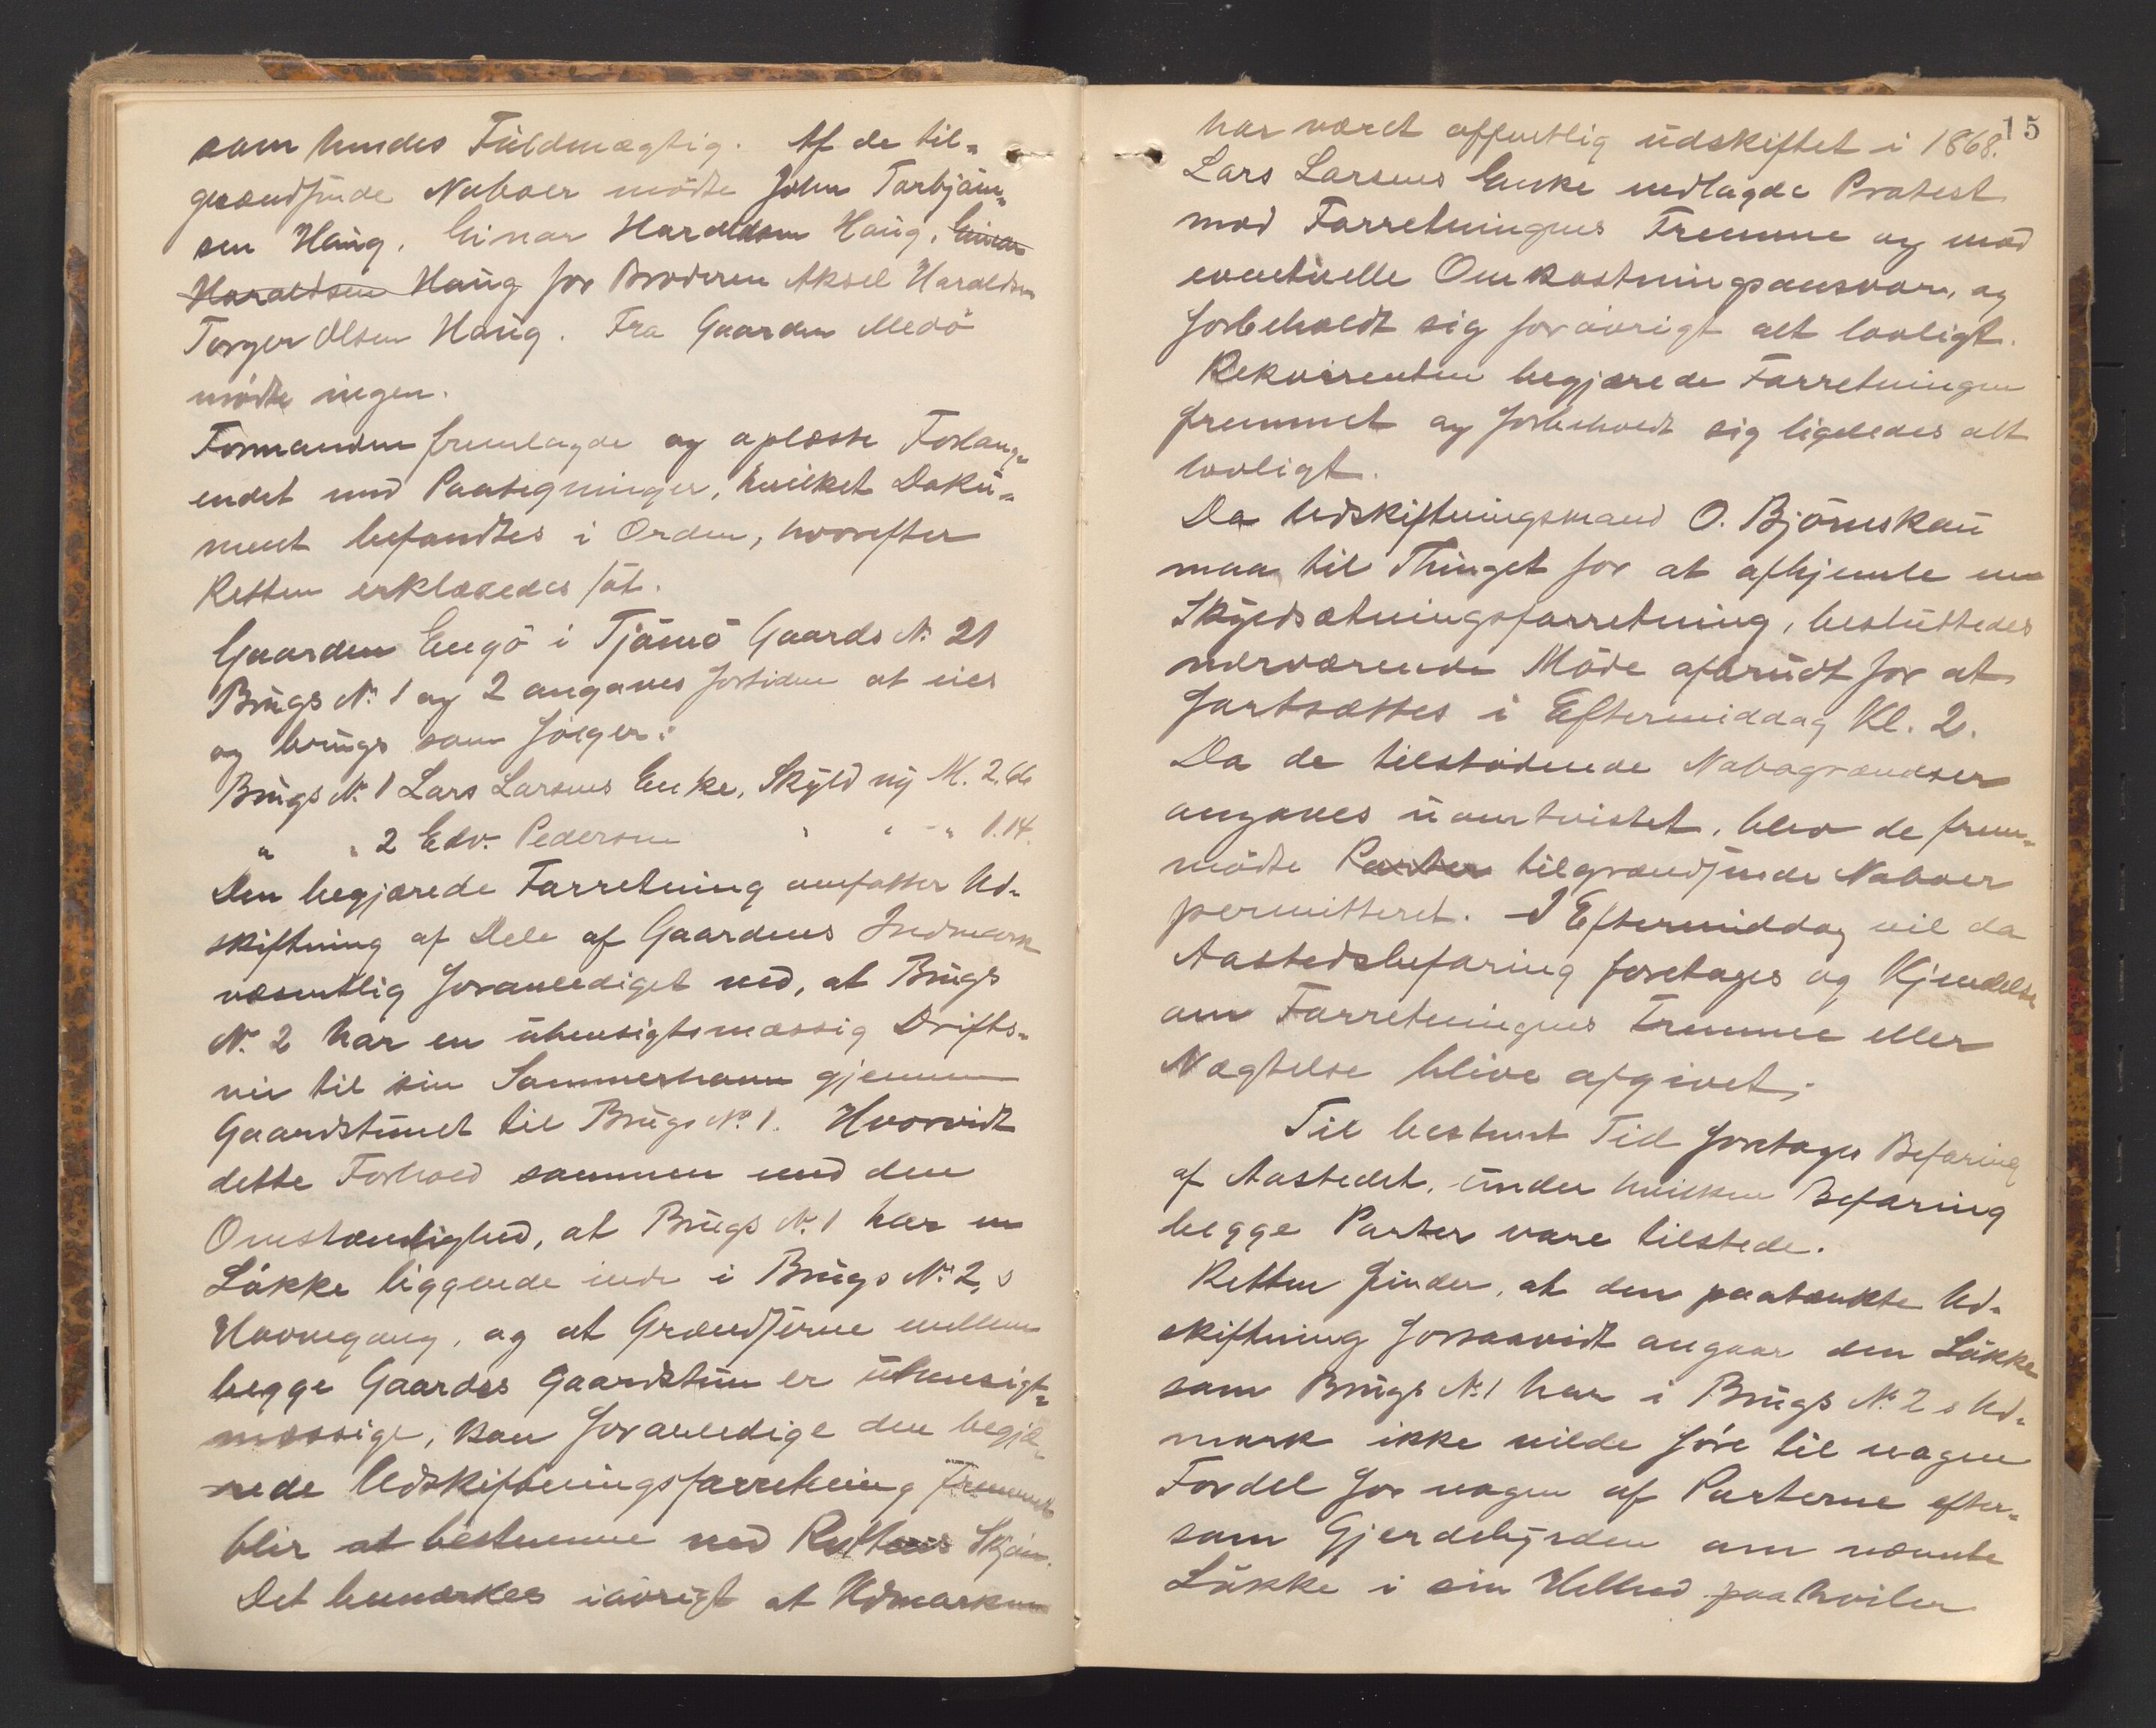 som hendes Fuldmægtig. Af de til-
grændsende Naboer mödte John Torbjörn-
sen Haug. Einar Haraldsen Haug, Einar
Haraldsen Haug for Broderen Aksel Haraldsen
Torger Olsen Haug. Fra Gaarden Medö
mödte ingen.
Formanden fremlagde og oplæste Forlang-
endet med Paategninger, hvilket Doku-
ment befandtes i Orden, hvorefter
Retten erklæredes sat.
Gaarden Engö i Tjömö Gaards No 21
Brugs No 1 og 2 angaves fortiden at eies
og bruges som fölger:
Brugs No 1 Lars Larsens Enke, Skyld ny M. 2.66
" " 2 Edv. Pedersen " " - " 1.14.
Den begjærede Forretning omfatter Ud-
skiftning af Dele af Gaardens Indmark
væsentlig foranlediget ved, at Brugs
No 2 har en uhensigtsmæssig Drifts-
vei til sin Sommerhavn gjennem
Gaardstunet til Brugs No 1. Hvorvidt
dette Forhold sammen med den
Omstændighed, at Brugs No 1 har en
Lökke liggende inde i Brugs No 2,s
Havnegang, og at Grændserne mellem
begge Gaardes Gaardstun er uhensigt-
mæssige, kan foranledige den begjæ-
rede Udskiftningsforretning fremmet
blir at bestemme ved Rettens Skjön.
Det bemærkes iövrigt at Udmarken
15
har været offentlig udskiftet i 1868.
Lars Larsens Enke nedlagde Protest
mod Forretningens Fremme og mod
eventuelle Omkostningsansvar, og
forbeholdt sig forövrigt alt lovligt.
Rekvirenten begjærede Forretningen
fremmet og forbeholdt sig ligeledes alt
lovligt.
Da Udskiftningsmand O. Björnskau
maa til Thinget for at afhjemle en
Skyldsætningsforretning, besluttedes
nærværende Möde afbrudt for at
fortsættes i Eftermiddag Kl. 2.
Da de tilstödende Nabogrændser
angaves uomtvistet, blev de frem-
mödte Parter tilgrændsende Naboer
permitteret. I Eftermiddag vil da
Aastedsbefaring foretages og Kjendelse
om Forretningens Fremme eller
Nægtelse blive afgivet.
Til bestemt Tid foretages Befaring
af Aastedet, under hvilken Befaring
begge Parter vare tilstede.
Retten finder, at den paatænkte Ud-
skiftning forsaavidt angaar den Lökke
som Brugs No 1 har i Brugs No 2s Ud-
mark ikke vilde före til nogen
Fordel for nogen af Parterne efter-
som Gjerdebyrden om nævnte
Lökke i sin Helhed paahviler